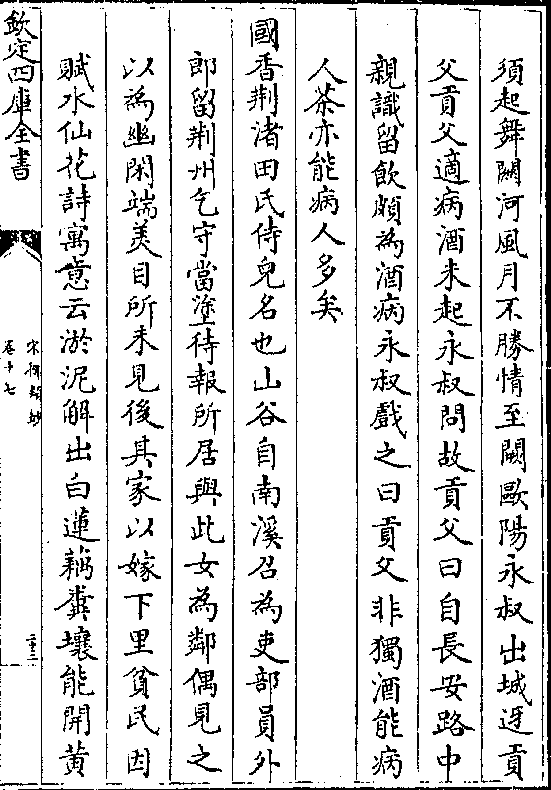 須起舞關河風月不勝情至闕歐陽永叔出城迓貢
父貢父適病酒未起永叔問故貢父曰自長安路中
親識留飲頗為酒病永叔戲之曰貢父非獨酒能病
人茶亦能病人多矣
國香荆渚田氏侍兒名也山谷自南溪召為吏部員外
郎留荆州乞守當塗待報所居與此女為鄰偶見之
以為幽閑端美目所未見後其家以嫁下里貧民因
賦水仙花詩寓意云淤泥解出白蓮藕糞壤能開黄
欽定四庫全書
宋稗類鈔
卷十七
二十三